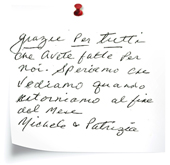 grazie Per tutti
che Avete fatte Per
noi. Speriamo che
Vediamo quando
ritorniamo al fine
del Mese
Michele & Patrizia